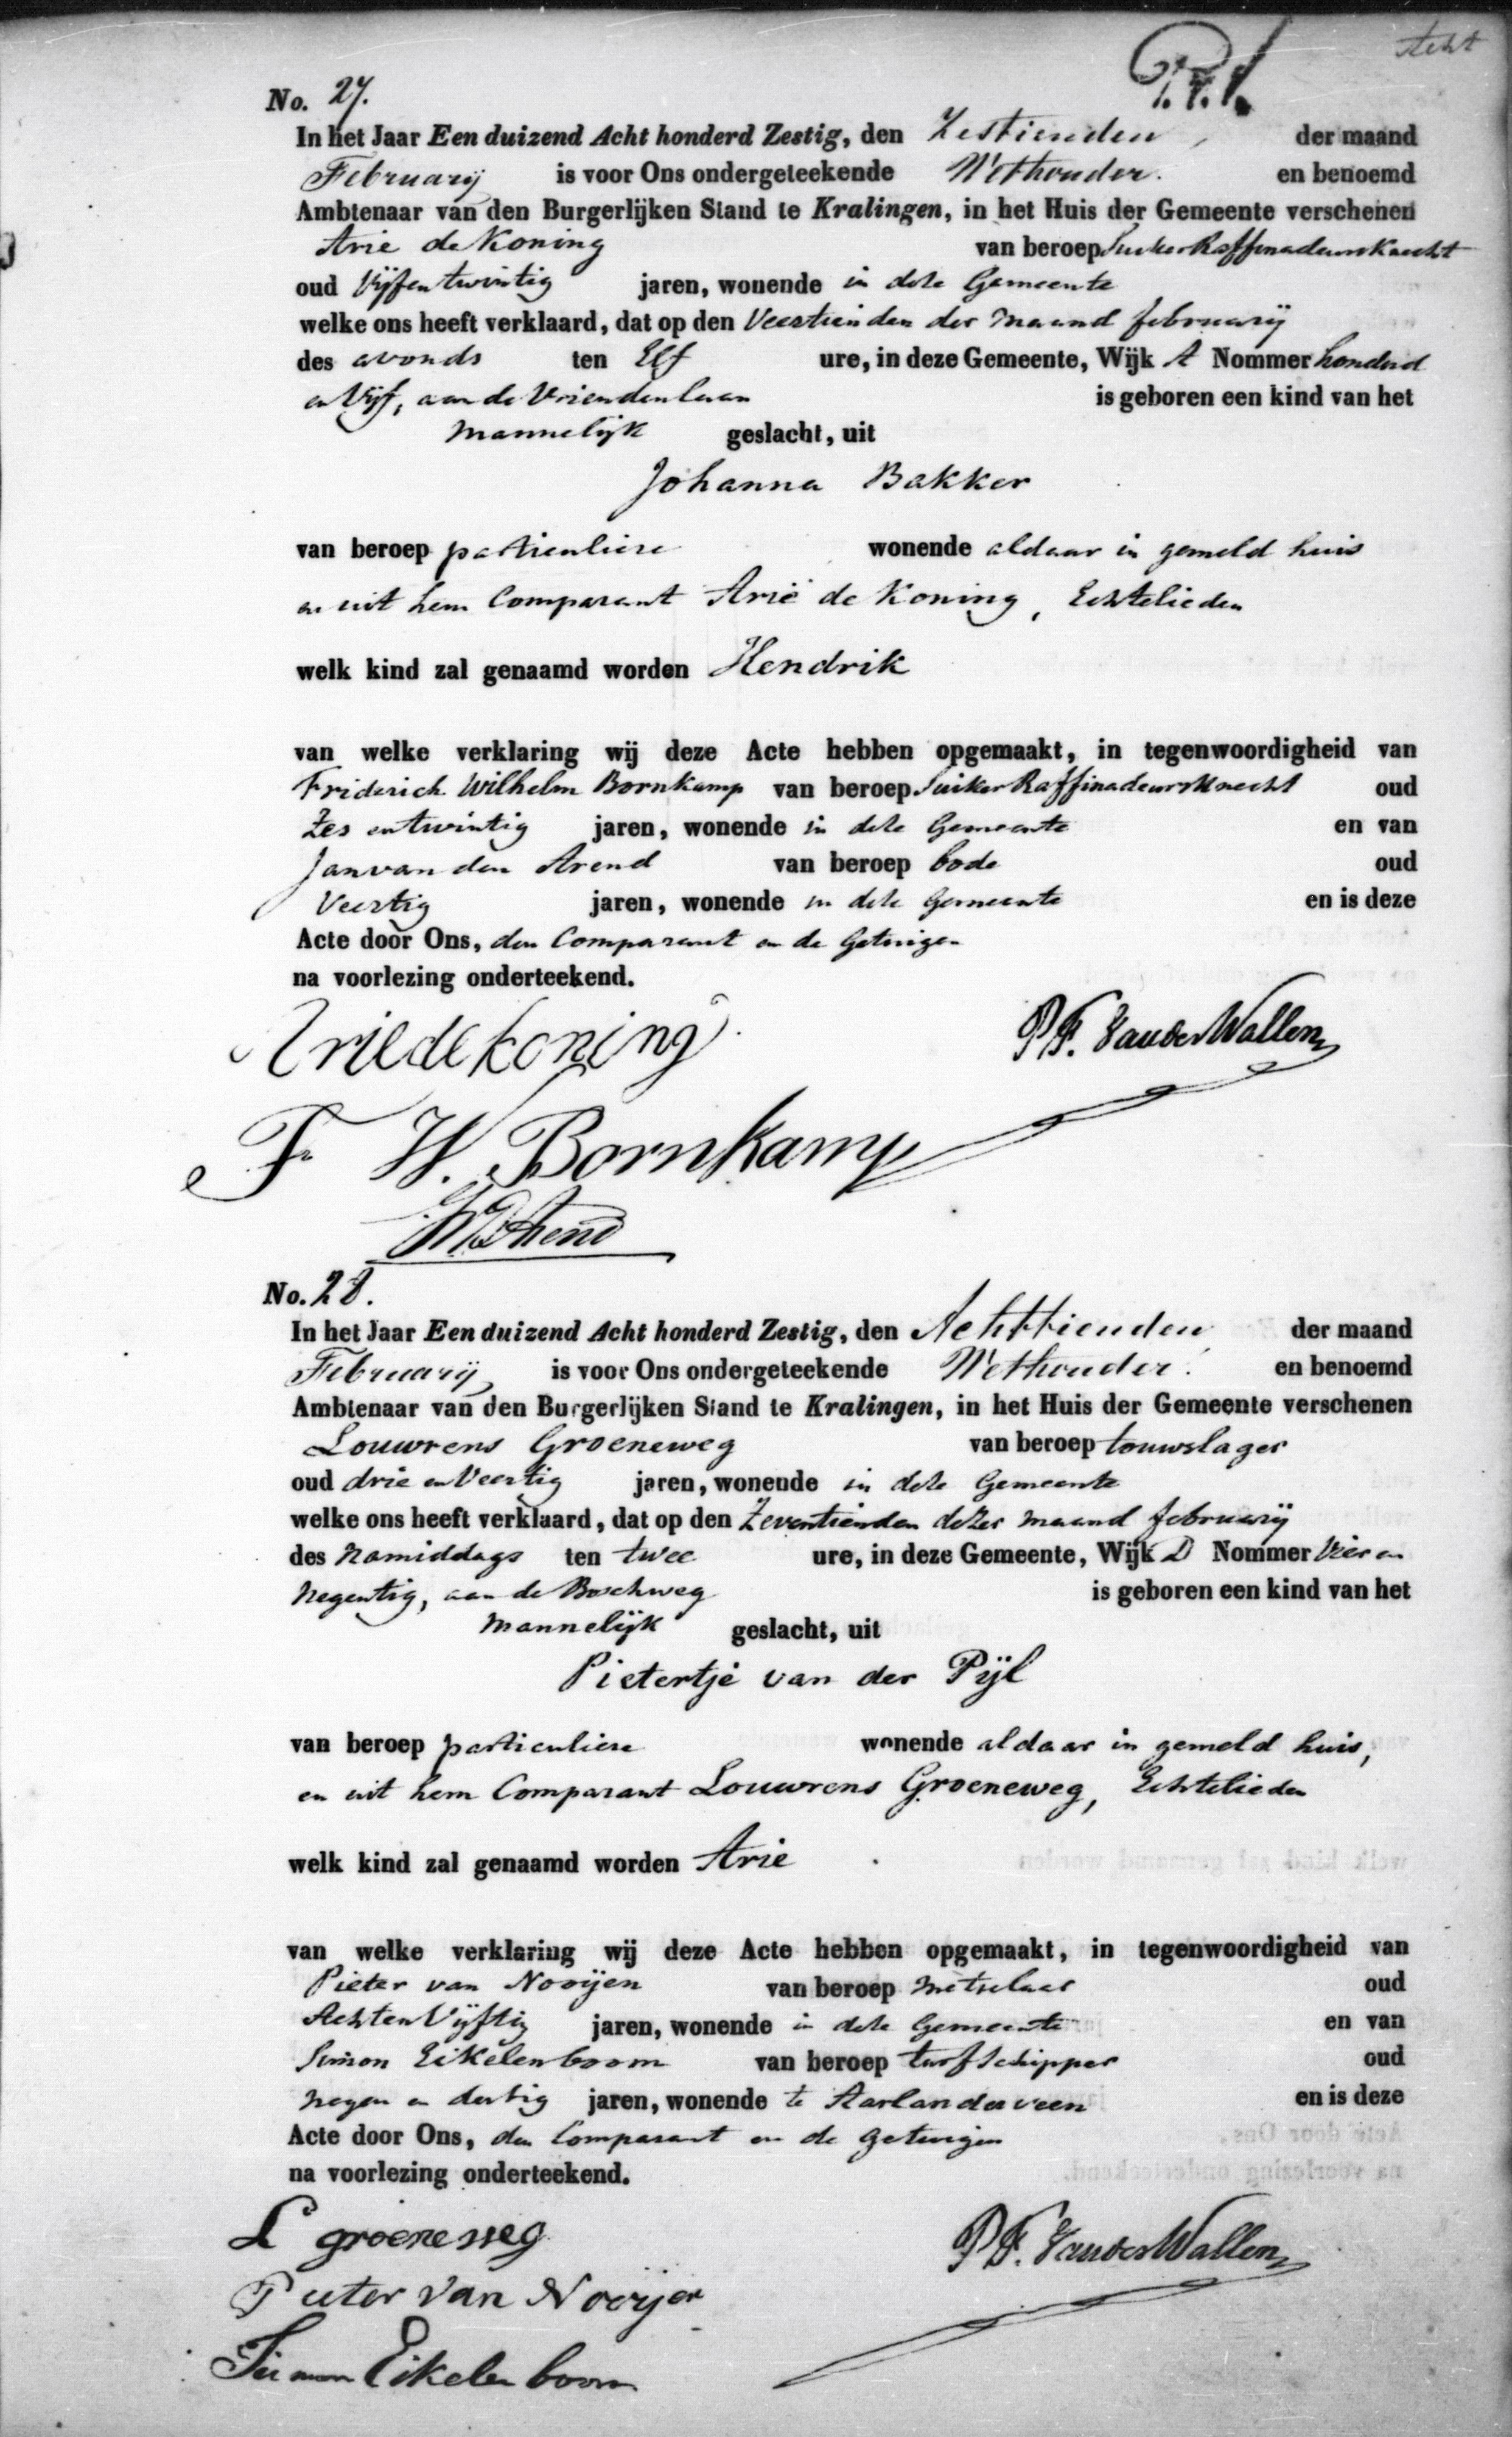 Acht
No. 27.
In het Jaar Een duizend Acht honderd Zestig, den Zestienden der maand
February is voor Ons ondergeteekende Wethouder en benoemd
Ambtenaar van den Burgerlijken Stand te Kralingen, in het Huis der Gemeente verschenen
Arie de Koning van beroep Suiker Raffinadeurs Knecht
oud Vijfentwintig jaren, wonende in deze Gemeente
welke ons heeft verklaard, dat op den Veertienden der maand february
des avonds ten Elf ure, in deze Gemeente, Wijk A Nommer honderd
en Vijf, aan de Vriendenlaan is geboren een kind van het
Mannelijk geslacht, uit
Johanna Bakker
van beroep particuliere wonende aldaar in gemeld huis
en uit hem Comparant Arie de Koning, Echtelieden
welk kind zal genaamd worden Hendrik
van welke verklaring wij deze Acte hebben opgemaakt, in tegenwoordigheid van
Friderich Wilhelm Bornkamp van beroep Suiker Raffinadeurs Knecht oud
Zes en twintig jaren, wonende in deze Gemeente en van
Jan van den Arend van beroep bode oud
Veertig jaren, wonende in deze Gemeente en is deze
Acte door Ons, den Comparant en de Getuigen
na voorlezing onderteekend.
Arie de koning P.F. Van der Wallen
F W. Bornkamp
No. 28.
In het Jaar Een duizend Acht honderd Zestig, den Achttienden der maand
February is voor Ons ondergeteekende Wethouder en benoemd
Ambtenaar van den Burgerlijken Stand te Kralingen, in het Huis der Gemeente verschenen
Louwrens Groeneweg van beroep touwslager
oud drie en Veertig jaren, wonende in deze Gemeente
welke ons heeft verklaard, dat op den Zeventienden dezer maand february
des Namiddags ten twee ure, in deze Gemeente, Wijk D Nommer Vier en
Negentig, aan de Boschweg is geboren een kind van het
Mannelijk geslacht, uit
Pietertje van der Pijl
van beroep particuliere wonende aldaar in gemeld huis,
en uit hem Comparant Louwrens Groeneweg, Echtelieden
welk kind zal genaamd worden Arie
van welke verklaring wij deze Acte hebben opgemaakt, in tegenwoordigheid van
Pieter van Nooijen van beroep metselaar oud
Acht en Vijftig jaren, wonende in deze Gemeente en van
Simon Eikelenboom van beroep turfschipper oud
negen en dertig jaren, wonende te Aarlanderveen en is deze
Acte door Ons, den Comparant en de getuigen
na voorlezing onderteekend.
L groeneweg P.F. Van der Wallen
Pieter van Nooijen
Simon Eikelenboom